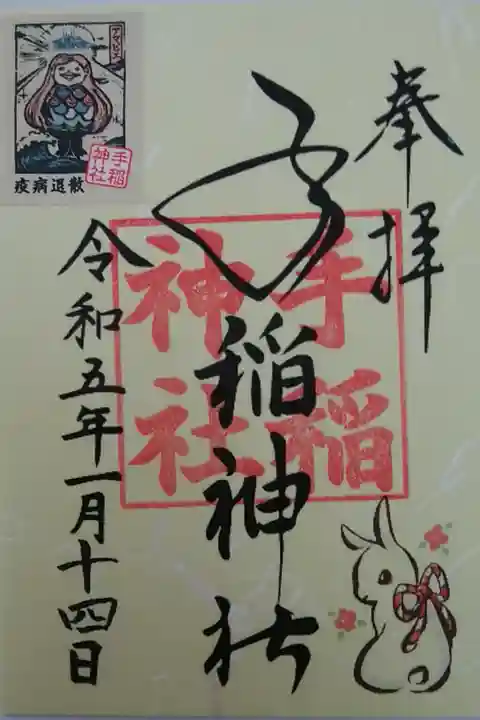 奉拝
手稲神社
手稲神社
令和五年一月十四日
アマビエ
手稲神社
疫病退散